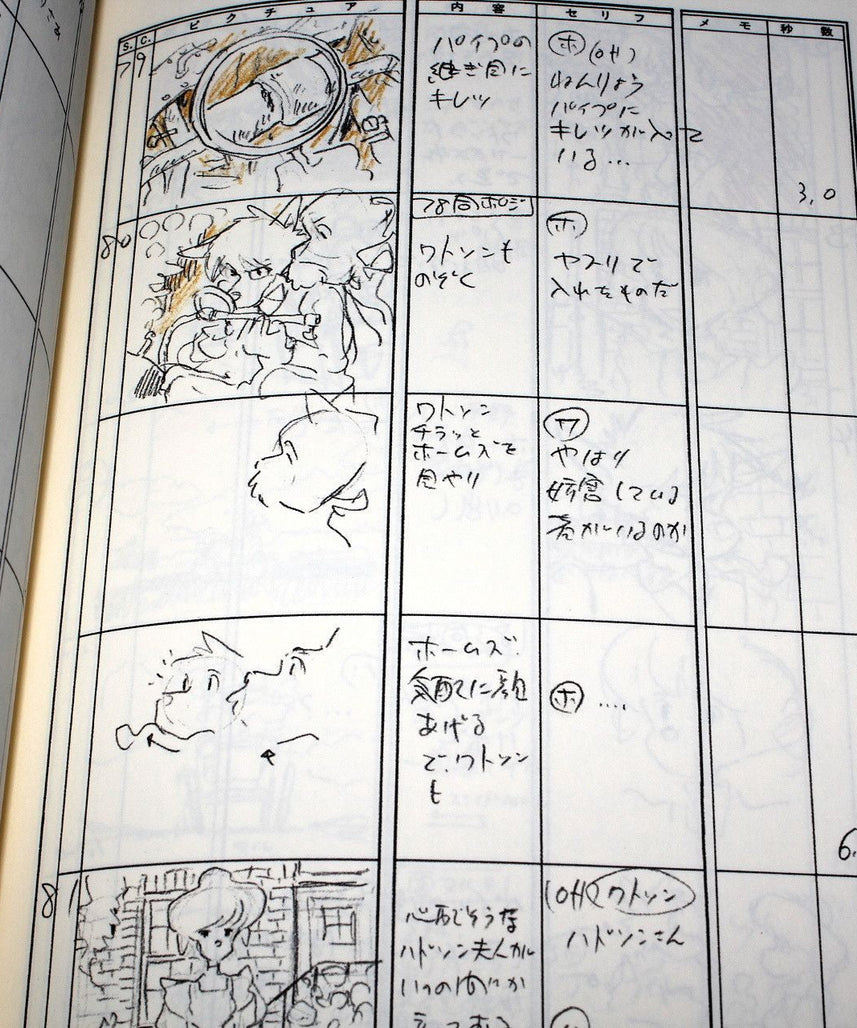 S. C. ピクチュア 内容 セリフ メモ 秒数
79
パイプの
継ぎ目に
キレツ
ホ (OFF)
ねんりょう
パイプに
キレツが入って
いる…
3,0
80
78同ポジ
ワトソンも
のぞく
ホ
ヤスリで
入れたものだ
ワトソン
チラッと
ホームズを
見やり
ワ
やはり
妨害している
者がいるのか
ホームズ
気配に顔
あげる
で、ワトソン
も
ホ ‥‥
6.
81
心配そうな
ハドソン夫人が
いつのまにか
(OFF) ワトソン
ハドソンさん